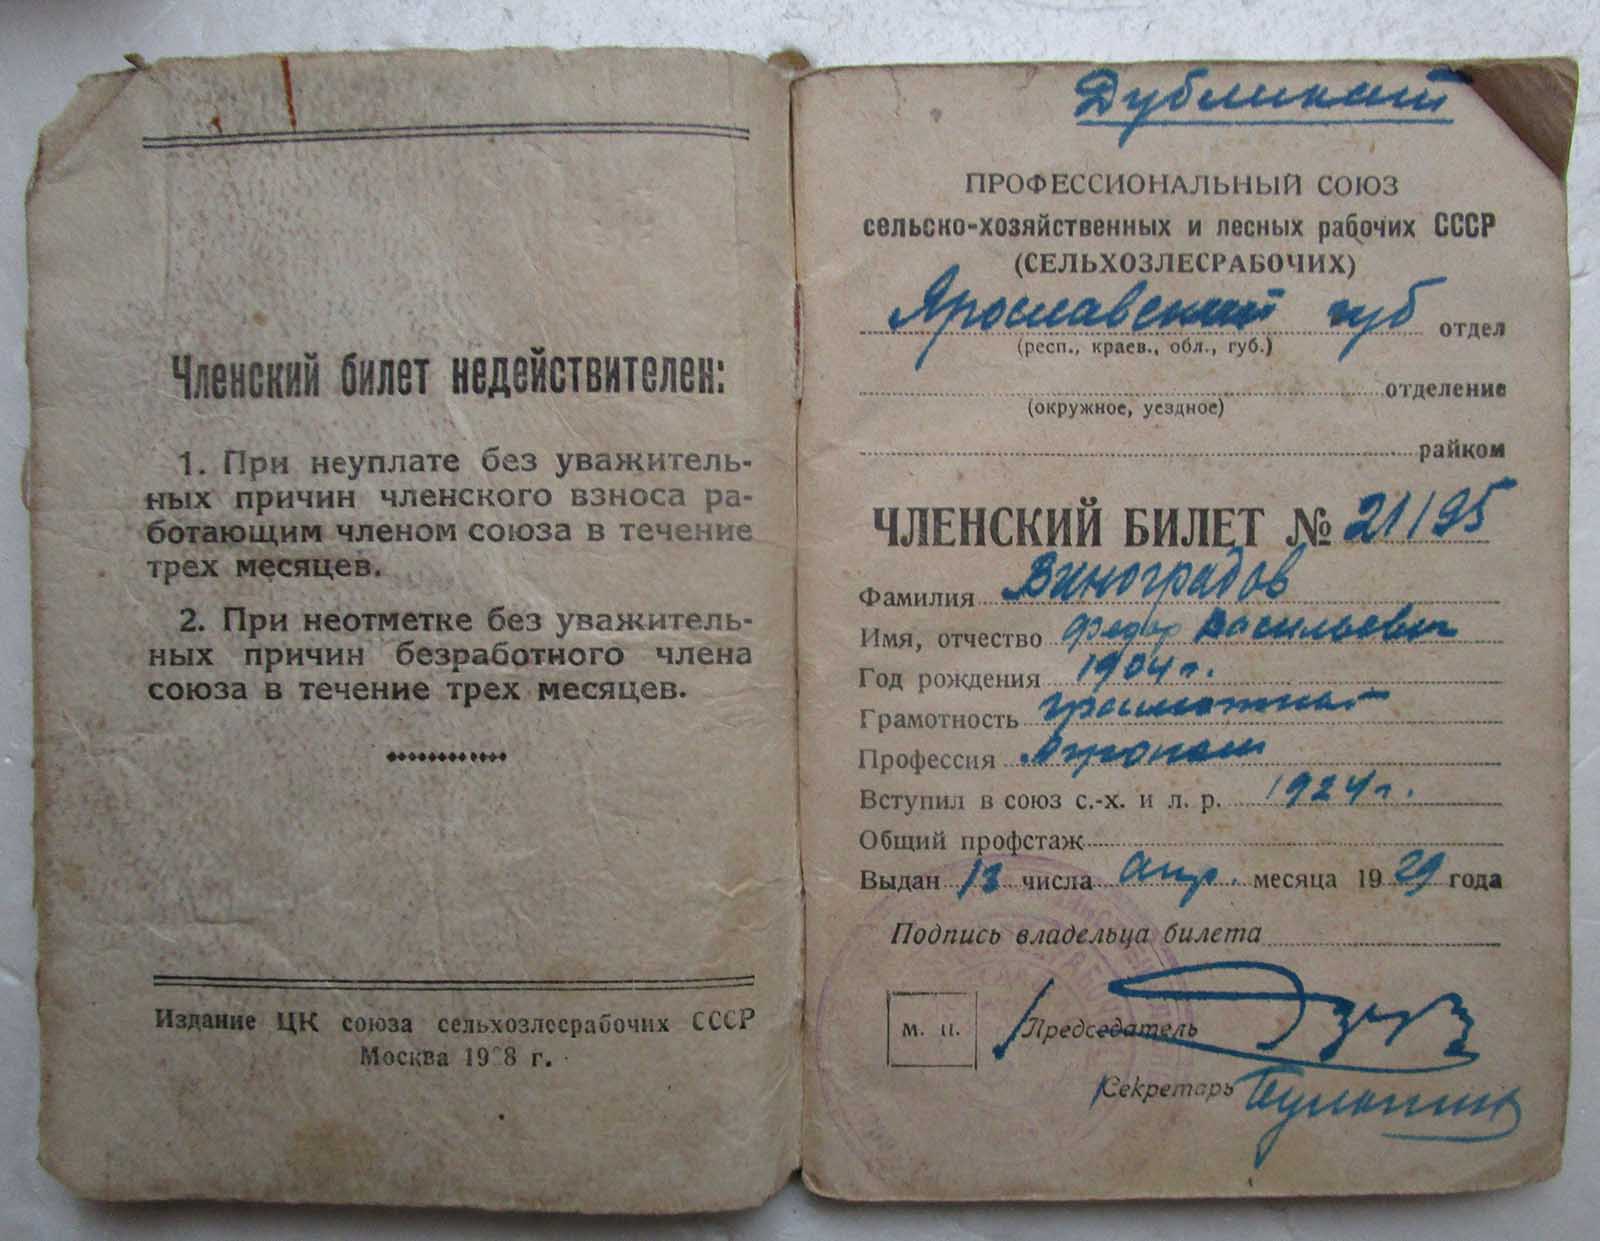 Членский билет недействителен:
1. При неуплате без уважитель-
ных причин членского взноса ра-
ботающим членом союза в течение
трех месяцев.
2. При неотметке без уважитель-
ных причин безработного члена
союза в течение трех месяцев.
Издание ЦК союза сельхозлесрабочих СССР
Москва 19 8 г.
Дубликат
ПРОФЕССИОНАЛЬНЫЙ СОЮЗ
сельско-хозяйственных и лесных рабочих СССР
(СЕЛЬХОЗЛЕСРАБОЧИХ)
Ярославский губ отдел
(респ., краев., обл., губ.)
отделение
(окружное, уездное)
райком
ЧЛЕНСКИЙ БИЛЕТ № 21195
Фамилия Виноградов
Имя, отчество Федор Васильевич
Год рождения 1904 г.
Грамотность грамотный
Профессия Агроном
Вступил в союз с.-х. и л. р. 1924 г.
Общий профстаж
Выдан 13 числа апр. месяца 1929 года
Подпись владельца билета
м. п.
Председатель
Секретарь